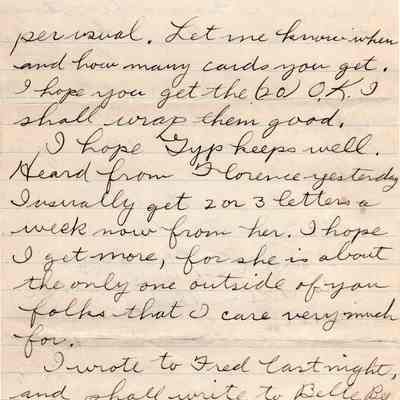 per usual. Let me know when
and how many cards you get.
I hope you get the 60 O.K. I
shall wrap them good.
I hope Gyp keeps well.
Heard from Florence yesterday
I usually get 2 or 3 letters a
week now from her. I hope
I get more, for she is about
the only one outside of you
folks that I care very much
for.
I wrote to Fred last night,
and shall write to Belle